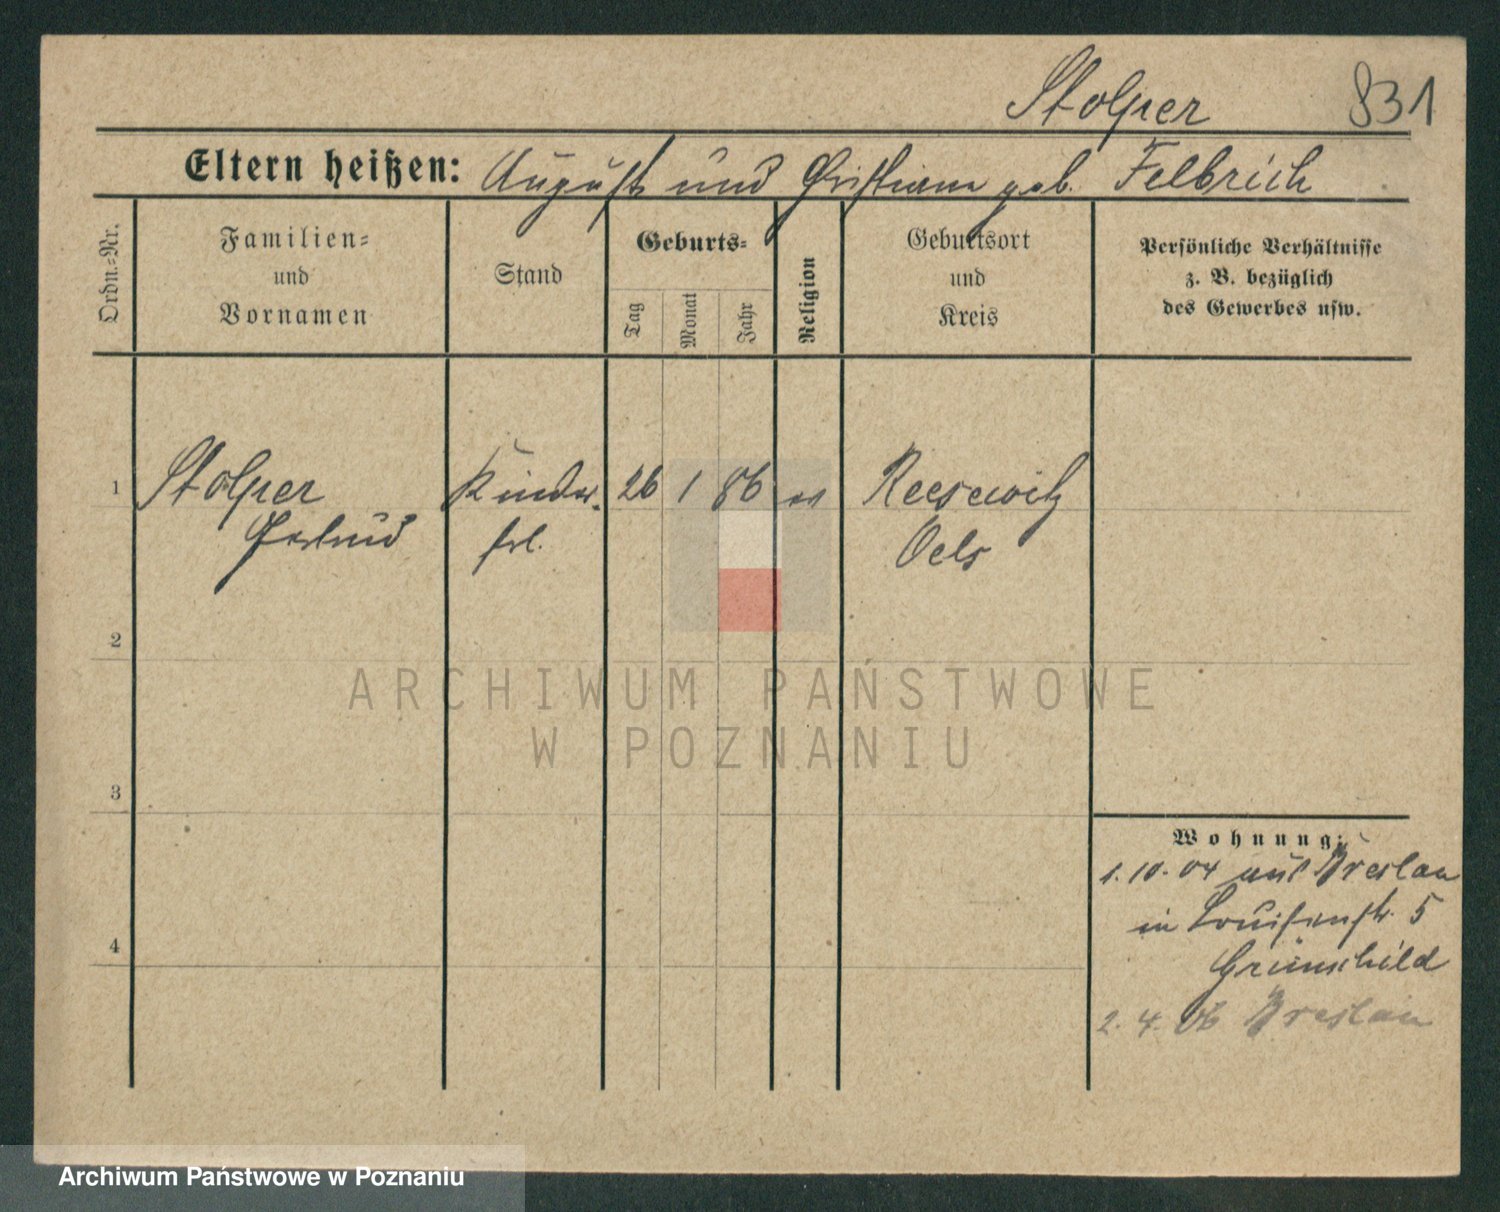 Stolper 831
Eltern heißen: August und Christiane geb. Felbrich
Ordn.-Nr.
Familien-
und
Vornamen
Stand
Geburts-
Tag
Monat
Jahr
Religion
Geburtsort
und
Kreis
Persönliche Verhältnisse
z. B. bezüglich
des Gewerbes usw.
1 Stolper Kinder- 26 1 86 ev Reesewitz
Gertrud frl. Oels
2
ARCHIWUM PAŃSTWOWE
W POZNANIU
3
Wohnung:
1.10.04 aus Breslau
in Louisenstr. 5
4
Grünschild
2.4.06 Breslau
Archiwum Państwowe w Poznaniu